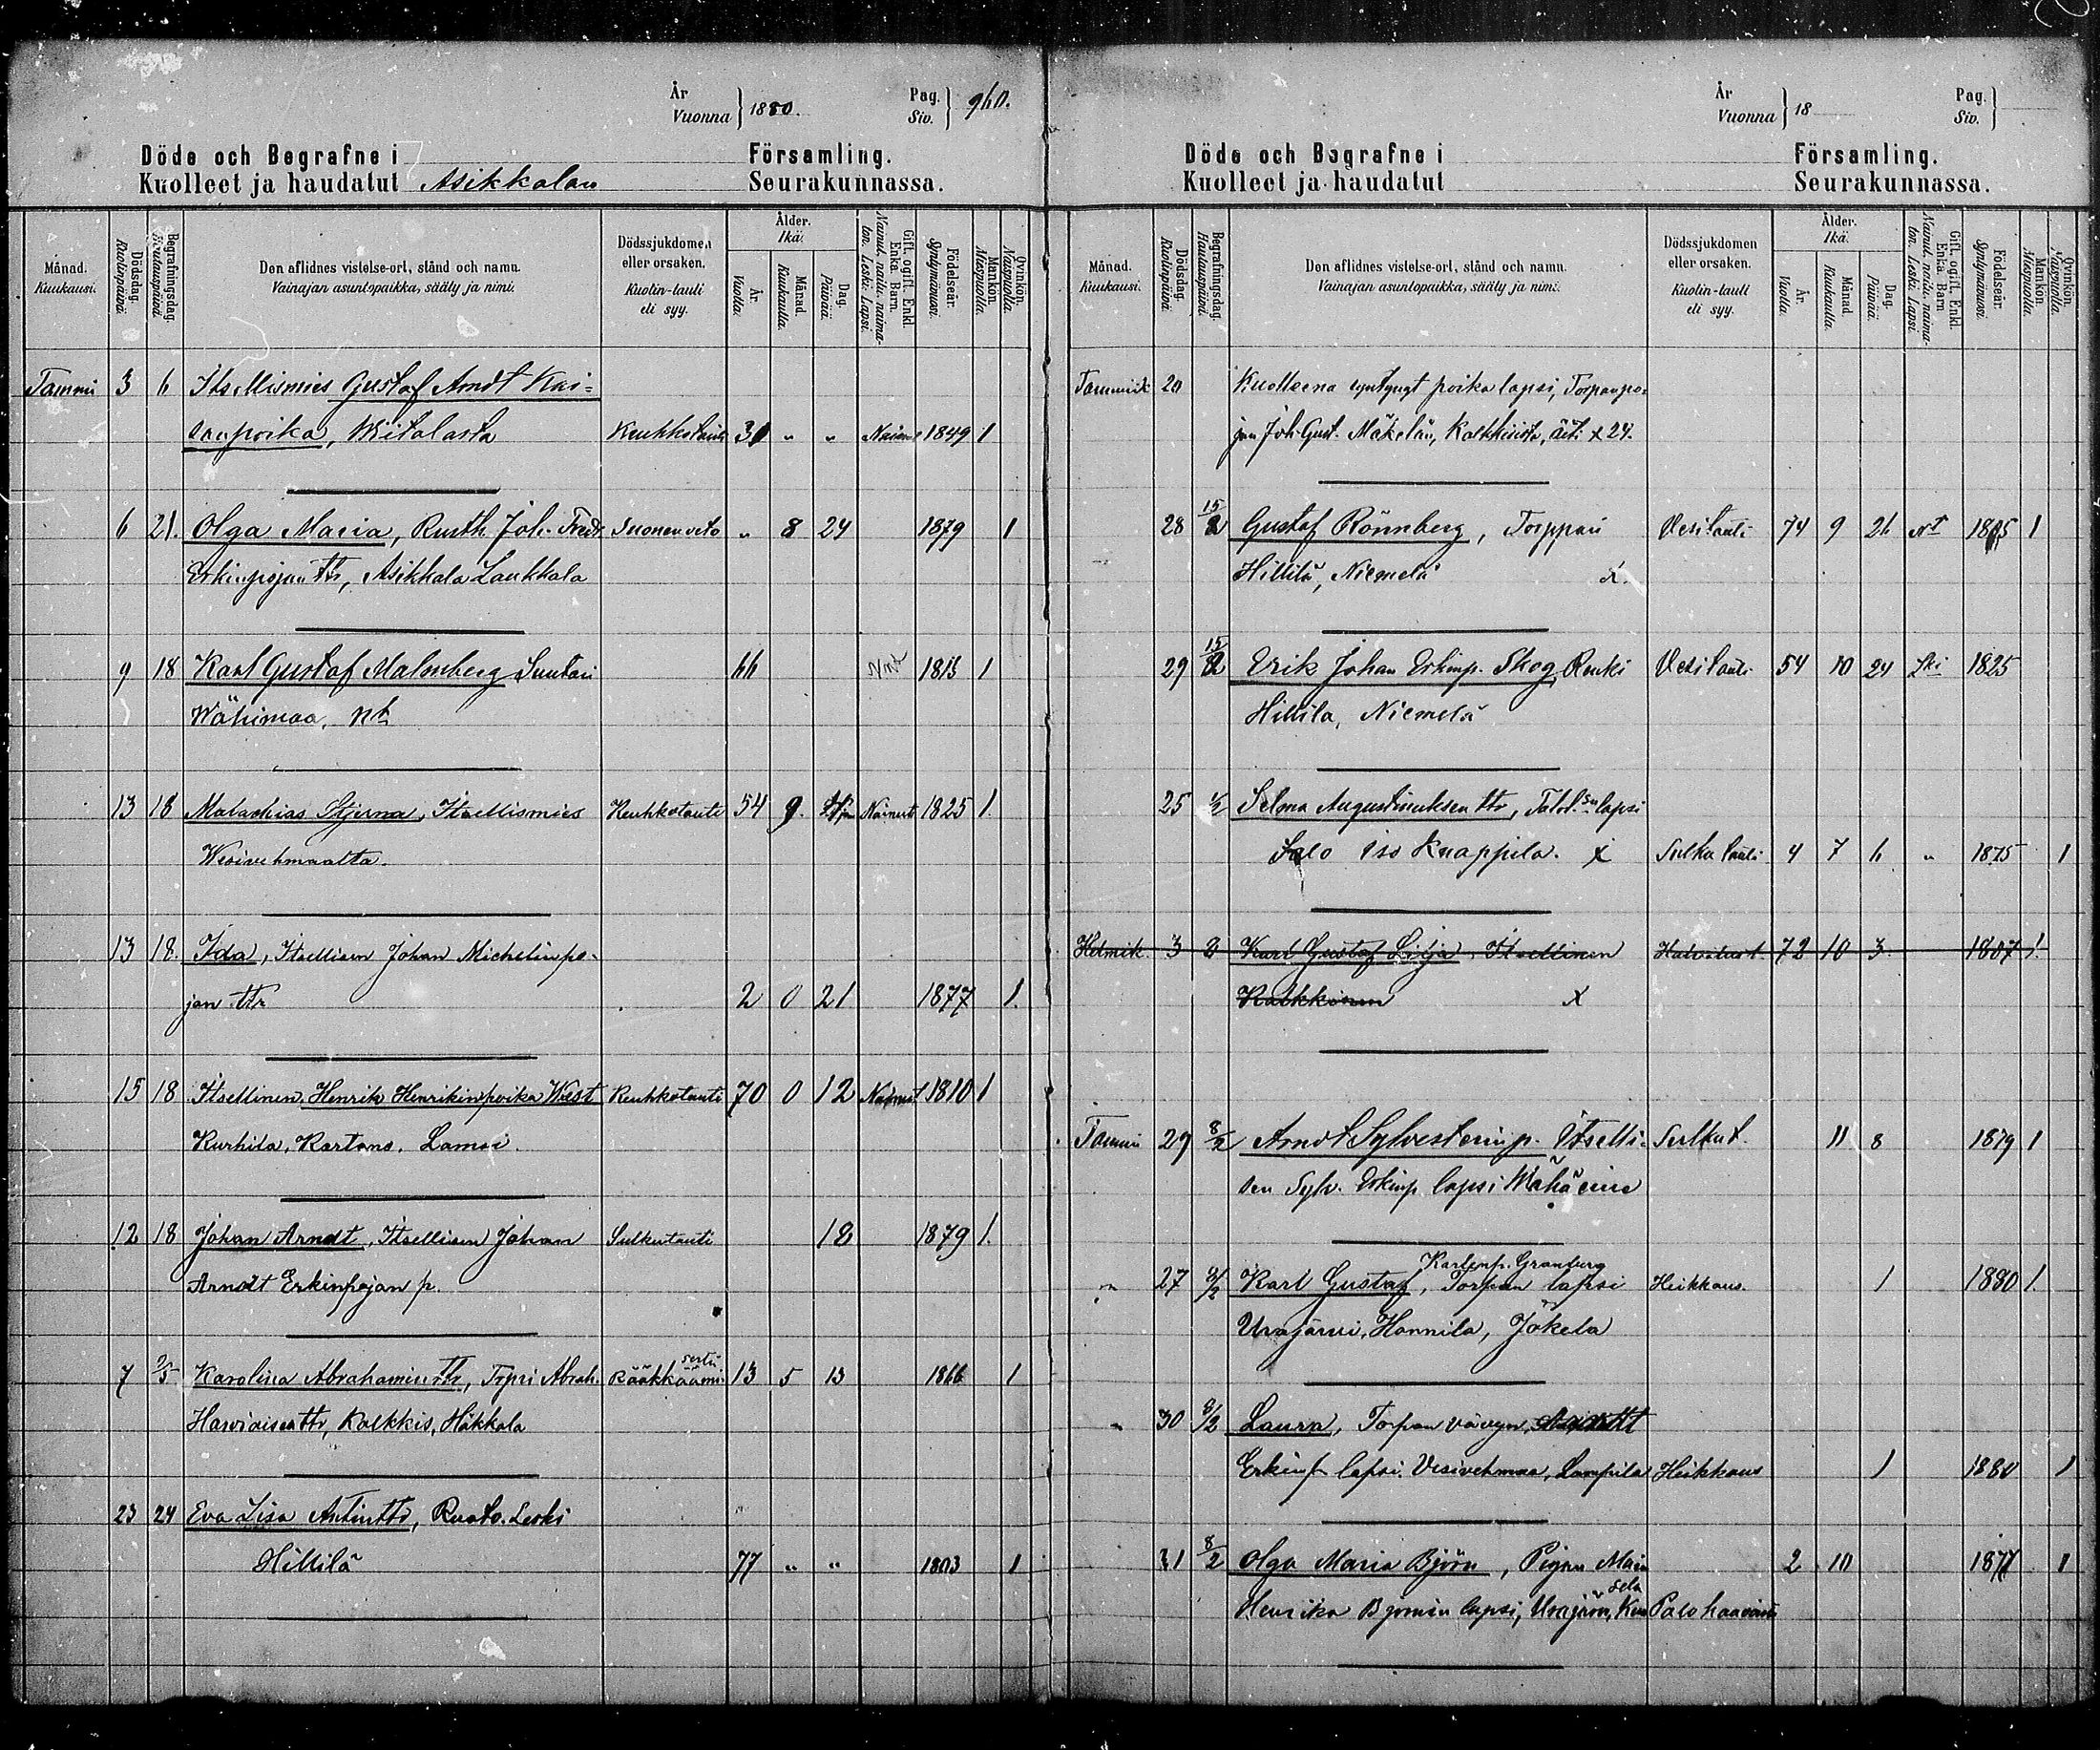 År
Vuonna } 1880.
Pag.
Siv. } 960.
Döde och Begrafne i Församling.
Kuolleet ja haudatut Asikkalan Seurakunnassa.
Månad. Kuukausi.
Dödsdag. Kuolinpäivä.
Begrafningsdag. Hautauspäivä.
Den aflidnes vistelse-ort, stånd och namn.
Vainajan asuntopaikka, sääty ja nimi.
Dödssjukdomen eller orsaken.
Kuolin-tauti eli syy.
Ålder. Ikä.
År. Vuotta.
Månad. Kuukautta.
Dag. Päivää.
Gift. ogift. Enkl. Enka. Barn.
Nainut. naim. naimaton. Leski. Lapsi.
Födelseår. Syntymävuosi.
Mankön. Miespuolia.
Qvinkön. Naispuolia.
Tammi 3 6 Itsellismies Gustaf Arndt Kai=
sanpoika, Wiitalasta Keuhkotauti 30 " " Nainut 1849 1
6 21. Olga Maria, Rusth. Joh. Fredr. Suonenveto " 8 24 1879 1
Erkinpojan ttr, Asikkala Laukkala
9 18 Karl Gustaf Malmberg Suutari 66 Nnt 1813 1
Wähimaa, nt
13 18 Malachias Stjerna, Itsellismies Keuhkotauti 54 9. Nainut 1825 1.
Wesivehmaalta.
13 18. Ida, Itsellisen Johan Michelinpo-
jan ttr 2 0 21 1877 1.
15 18 Itsellinen Henrik Henrikinpoika West Keuhkotauti 70 0 12 Nainut 1810 1
Kurhila, Kartano. Lamsi.
12 18 Johan Arndt, Itsellisen Johan Sulkutauti 18 1879 1.
Arndt Erkinpojan p.
7 2/5 Karolina Abrahamintr, Trpri Abrah. 13 5 13 1866 1
Harviaisen ttr, Kalkkis, Häkkala
23 24 Eva Lisa Antinttr, Ruoto. Leski
Hillilä 77 " " 1803 1
År
Vuonna } 18
Pag.
Siv. }
Döde och Begrafne i Församling.
Kuolleet ja haudatut Seurakunnassa.
Månad. Kuukausi.
Dödsdag. Kuolinpäivä.
Begrafningsdag. Hautauspäivä.
Den aflidnes vistelse-ort, stånd och namn.
Vainajan asuntopaikka, sääty ja nimi.
Dödssjukdomen eller orsaken.
Kuolin-tauti eli syy.
Ålder. Ikä.
År. Vuotta.
Månad. Kuukautta.
Dag. Päivää.
Gift. ogift. Enkl. Enka. Barn
Nainut. naim. naimaton. Leski. Lapsi.
Födelseår. Syntymävuosi.
Mankön. Miespuolia.
Qvinkön. Naispuolia.
Tammik 20 Kuolleena syntynyt poika lapsi, Torpanpo-
jan Joh. Gust. Mäkelän, Kalkkisista, äiti x 24.
28 15/2 Gustaf Rönnberg, Torppari Vesitauti 74 9 26 nt 1805 1
Hillilä, Niemelä x.
29 15/2 Erik Johan Erkinp. Skog, Renki Vesitauti 54 10 24 Lki 1825
Hillilä, Niemelä
25 1/2 Selma Augustinuksen ttr, Talol:sen lapsi
Salo iso Knappila. x Sulkutauti 4 7 6 " 1875 1
Helmik. 3 8 Karl Gustaf Lilja, Itsellinen 72 10 3. 1807 1.
Kalkkinen x
Tammi 29 8/2 Arndt Sylvesterinp. Itselli- Sulkut. 11 8 1879 1
sen Sylv. Erkinp lapsi Wähä
Karlinp. Granberg
" 27 8/2 Karl Gustaf, Torpan lapsi Heikkous. 1 1880 1.
Urajärvi, Hannila, Jokela
" 30 8/2 Laura, Torpan vävyn,
Erkinp lapsi. Vesivehmaa, Lampila Heikkous 1 1880 1
31 8/2 Olga Maria Björn, Pigan Maria 2 10 1877 1
Henrika Björnin lapsi, Urajärvi, Palohaavoista